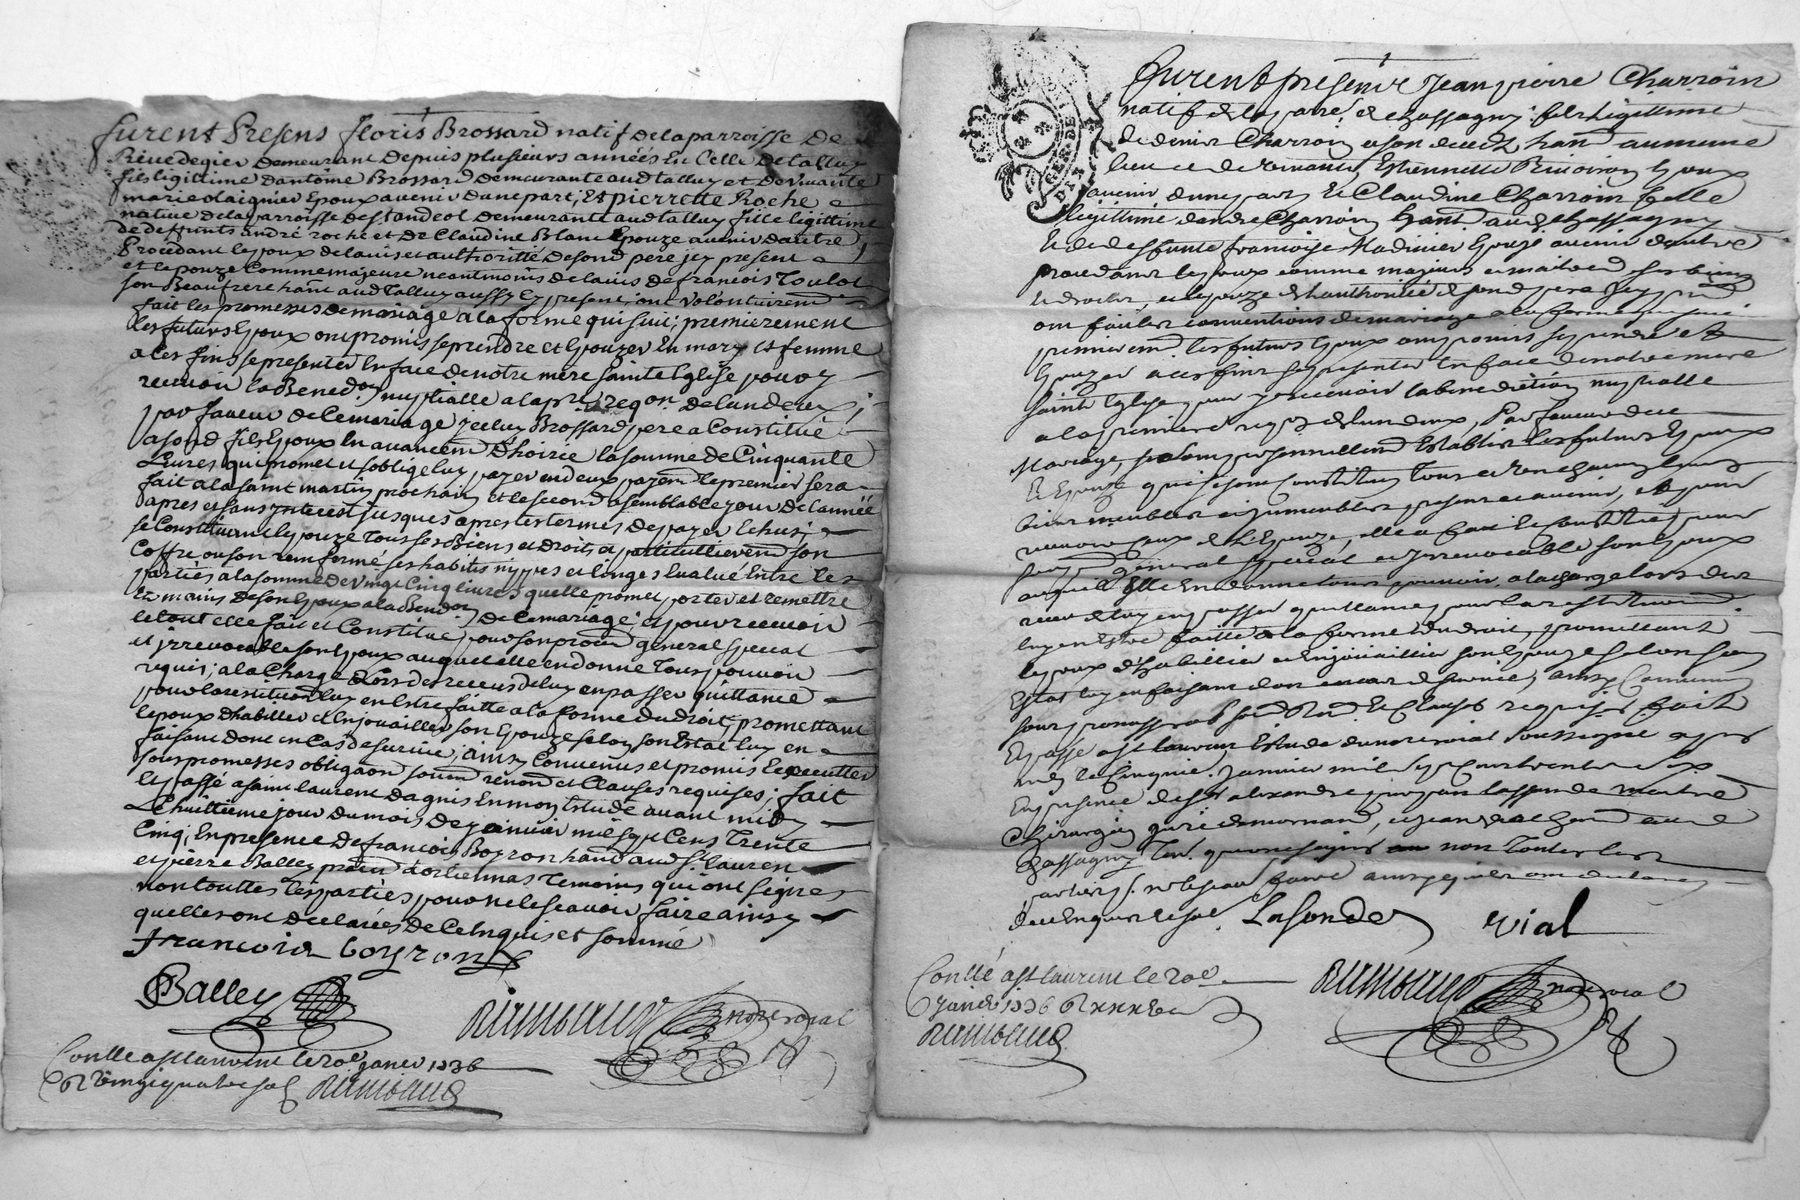 furent Presens floris Brossard natif de la parroisse De
Rivedegier Demeurant Depuis plusieurs années En Celle De talluy
fils legittime Dantoine Brossard Demeurant aud talluy et De vivante
marie laignier Epoux avenir Dune part, Et pierrette Roche
native De la parroisse de st andeol Demeurante aud talluy fille legittime
De deffunts andré roche et De Claudine Blanc Epouze avenir Dautre
Procedant lepoux De lavis et authoritté De sond pere jcy present
et lepouze Comme majeure neantmoins de lavis De francois Toulot
son Beaufrere hant aud talluy aussy Icy present, ont volontairemt
fait les promesses De mariage a la forme qui suit; premierement
les futurs Epoux ont promis se prendre et Epouzer En mary et femme
a ces fins se presenter En face de notre mere sainte Eglise pour y
recevoir la Benedon nuptialle a la pre reqon De lun deux;
par faveur De ce mariage jceluy Brossard pere a Constitué
a sond fils Epoux En avancemt D'hoirie la somme de Cinquante
Livres qui promet et soblige luy payer en deux payemt le premier sera
fait a la saint martin prochain et le second a semblable jour De lannée
apres et sans jnterest jusques apres les termes De payer Echus;
se Constituant lepouze Tous ses Biens et Droits et particullieremt son
Coffre ou son renfermé ses habits nippes et linges Evalué Entre les
parties a la somme De vingt Cinq livres quelle promet porter et remettre
Es mains De son Epoux a la Bendon De ce mariage; et pour recevoir
le tout elle fait et Constitué pour son procur general special
et jrrevocable son Epoux auquel elle en donne Tous pouvoir
requis; a la Charge Lors des receus de luy en passer quittance
pour la restitution luy en Estre faitte a la forme du Droit, promettant
lepoux Dhabiller et Enjouailler son Epouze selon son Estat luy en
faisant Dont en Cas de survie; ainsy Convenus et promis Executter
sous promesses obligaon soumon renon et Clauses requises; fait
et passé a saint laurent Dagnis En mon Estude avant midy
Le huittieme jour Du mois De janvier mil sept Cens Trente
Cinq; En presence De francois Boyron hant aud st lauren
et pierre Balley praten Dorlienas Temoins qui ont signes
non touttes les parties pour ne le scavoir faire ainsy
quelles ont declarées De ce Enquis et sommé
francois boyron
Balley
Contllé a st laurent le 20e janer 1736
Rt vingt quatre sol
furent presens Jean pierre Charroin
natif de la parre de chassagny fils legittime
de denis Charroin a son deceds hant au meme
lieu et de vivante Estiennette Epoux
avenir dune part, Et Claudine Charroin fille
legittime dandre Charroin hant aud chassagny
Et de deffunte francoise Madinier Epouze avenir dautre
procedants lepoux comme majeur et maitre de ses biens
et droits, et lepouze de lauthoritté de sond pere jcy present
ont fait les conventions de mariage a la forme qui suit
premieremt les futurs Epoux ont promis se prendre et
Epouzer a ces fins se presenter En face de notre mere
sainte Eglise pour y recevoir la benediction nuptialle
a la premiere reqon de lun deux, Par faveur de ce
Mariage, se sont personnellemt Establis les futurs Epoux
Et Epouze qui se sont Constitués tous et Un chacuns leurs
biens meubles et jmmeubles presens et avenir, et pour
recevoir ceux de l'Epouze, elle a fait et Constitué pour
general special et jrrevocable son Epoux
auquel elle En donne tous pouvoir a la charge lors des
receus de luy en passer quittances pour la restitution
luy en Estre faitte a la forme du droit, promettant
lepoux d'habiller et Enjouailler son Epouze selon son
Estat luy en faisant don en cas de survie; ainsy Convenus
sous promesses obligaon soumon Renon Et Clauses requises fait
Et passé a st laurent Estude du nore royal soussigné apres
midy le Cinquie janvier mil sept Cens trente six
En presence de sr alexandre Lassonde maitre
chirurgien juré de mornand, et jean vial hant aud
chassagny Tem. qui ont signes non toutes les
parties p. ne le scavoir faire ainsy quelles ont declarés
de ce Enquis et sol. Lasonde vial
Contllé a st laurent le 20e
janer 1736